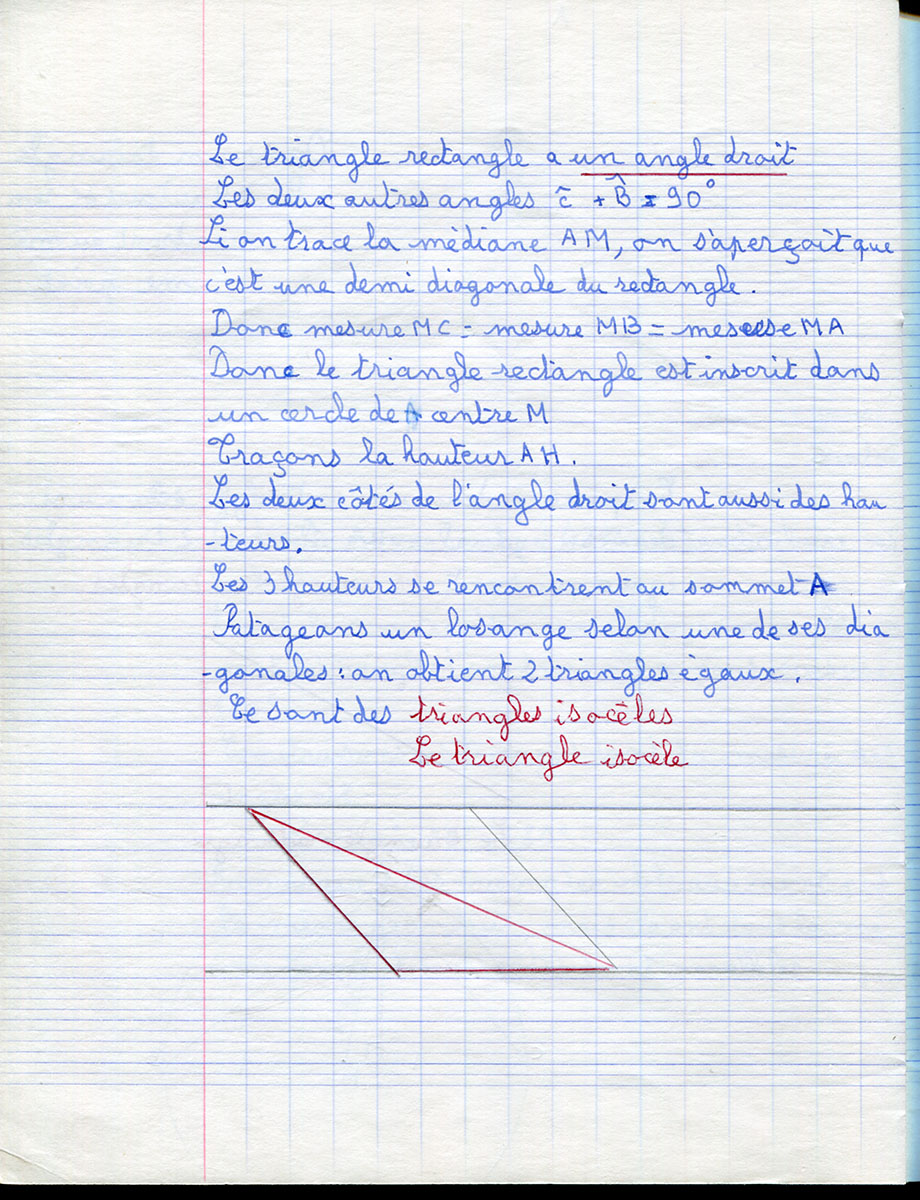 Le triangle rectangle a un angle droit
Les deux autres angles ĉ + B̂ = 90°
Si on trace la médiane AM, on s'aperçoit que
c'est une demi diagonale du rectangle.
Donc mesure MC = mesure MB = mesure MA
Donc le triangle rectangle est inscrit dans
un cercle de centre M
Traçons la hauteur AH.
Les deux côtés de l'angle droit sont aussi des hau
-teurs.
Les 3 hauteurs se rencontrent au sommet A
Patageons un losange selon une de ses dia
-gonales : on obtient 2 triangles égaux.
Ce sont des triangles isocèles
Le triangle isocèle